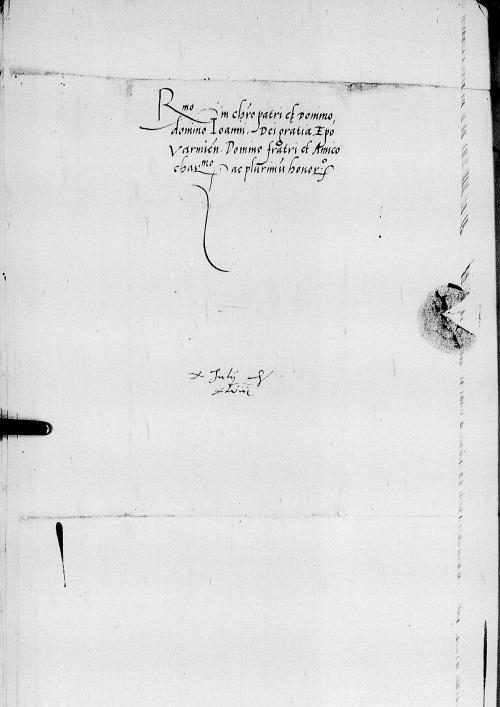 Rmo in chro patri et domino,
domino Ioanni. Dei gratia Epo
Varmien. Domino fratri et Amico
charmo ac plurimu honor
Julij
xlviii